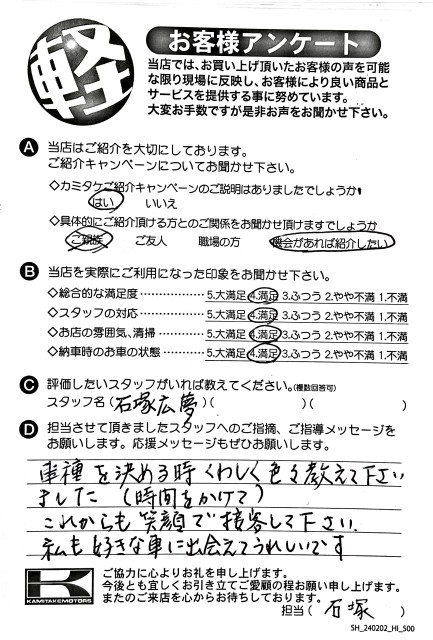 軽
お客様アンケート
当店では、お買い上げ頂いたお客様の声を可能
な限り現場に反映し、お客様により良い商品と
サービスを提供する事に努めています。
大変お手数ですが是非お声をお聞かせ下さい。
A 当店はご紹介を大切にしております。
ご紹介キャンペーンについてお聞かせ下さい。
◇カミタケご紹介キャンペーンのご説明はありましたでしょうか
はい いいえ
◇具体的にご紹介頂ける方とのご関係をお聞かせ頂けますでしょうか
ご親族 ご友人 職場の方 機会があれば紹介したい
B 当店を実際にご利用になった印象をお聞かせ下さい。
◇総合的な満足度 5.大満足 4.満足 3.ふつう 2.やや不満 1.不満
◇スタッフの対応 5.大満足 4.満足 3.ふつう 2.やや不満 1.不満
◇お店の雰囲気、清掃 5.大満足 4.満足 3.ふつう 2.やや不満 1.不満
◇納車時のお車の状態 5.大満足 4.満足 3.ふつう 2.やや不満 1.不満
C 評価したいスタッフがいれば教えてください。(複数回答可)
スタッフ名(石塚広夢)( )( )
D 担当させて頂きましたスタッフへのご指摘、ご指導メッセージを
お願いします。応援メッセージもぜひお願いします。
車種を決める時くわしく色々教えて下さい
ました(時間をかけて)
これからも笑顔で接客して下さい.
私も好きな車に出会えてうれしいです
K
KAMITAKEMOTORS
ご協力に心よりお礼を申し上げます。
今後とも宜しくお引き立てご愛顧の程お願い申し上げます。
またのご来店を心からお待ちしております。
担当(石塚)
SH_240202_HI_500